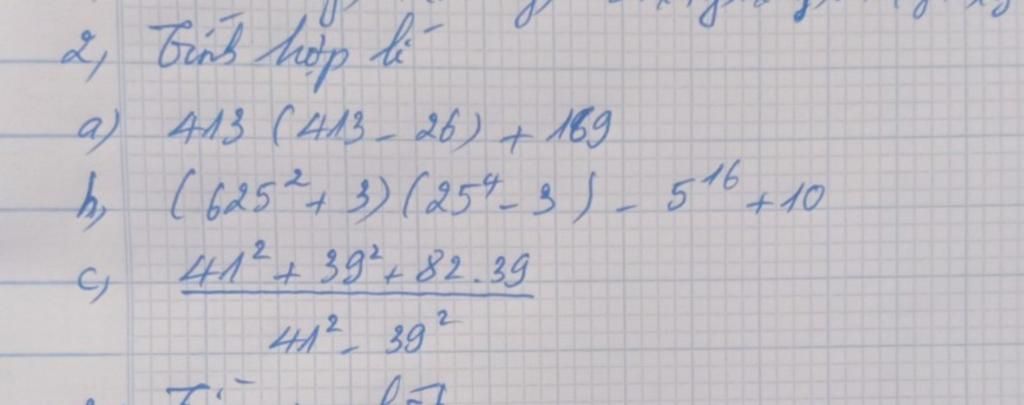 2, Tính hợp lí
a) 413 (413 - 26) + 169
b, (625² + 3)(25⁴ - 3) - 5¹⁶ + 10
c, (41² + 39² + 82.39) / (41² - 39²)